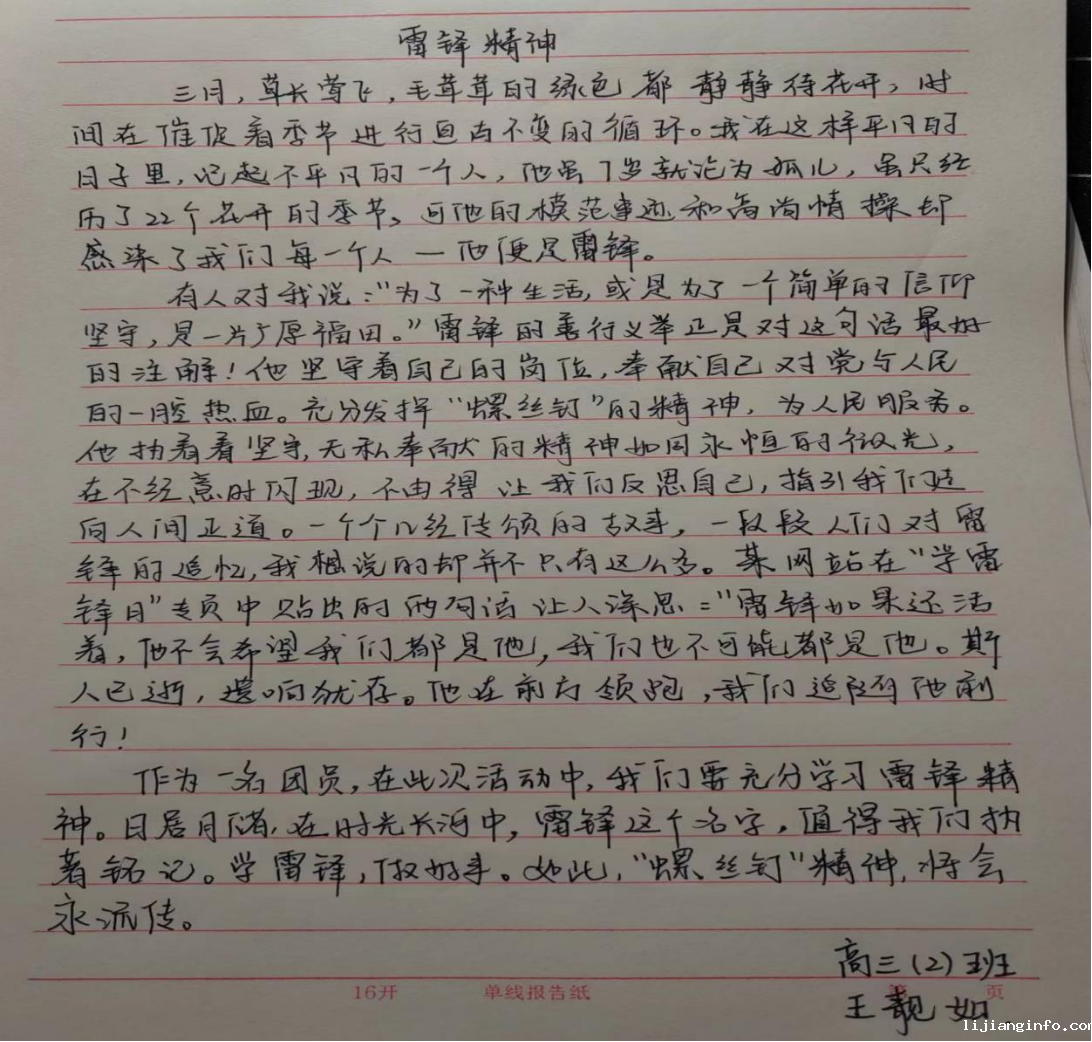 雷锋精神
三月，草长莺飞，毛茸茸的绿色都静静待花开，时
间在催促着季节进行亘古不变的循环。我在这样平凡的
日子里，记起不平凡的一个人，他虽7岁就沦为孤儿，虽只经
历了22个花开的季节，可他的模范事迹和高尚情操却
感染了我们每一个人—他便是雷锋。
有人对我说："为了一种生活，或是为了一个简单的信仰
坚守，是一片广厚福田。"雷锋的善行义举正是对这句话最好
的注解！他坚守着自己的岗位，奉献自己对党与人民
的一腔热血。充分发挥"螺丝钉"的精神，为人民服务。
他执着着坚守，无私奉献的精神如同永恒的微光，
在不经意时闪现，不由得让我们反思自己，指引我们走
向人间正道。一个个几经传颂的故事，一段段人们对雷
锋的追忆，我想说的却并不只有这么多。某网站在"学雷
锋日"专页中贴出的两句话让人深思："雷锋如果还活
着，他不会希望我们都是他，我们也不可能都是他。斯
人已逝，遗响犹存。他在前方领跑，我们追随他前
行！
作为一名团员，在此次活动中，我们要充分学习雷锋精
神。日居月诸，在时光长河中，雷锋这个名字，值得我们执
着铭记。学雷锋，做好事。如此，"螺丝钉"精神，将会
永流传。
高三（2）班
16开 单线报告纸 第 页
王靓如
lijianginfo.com